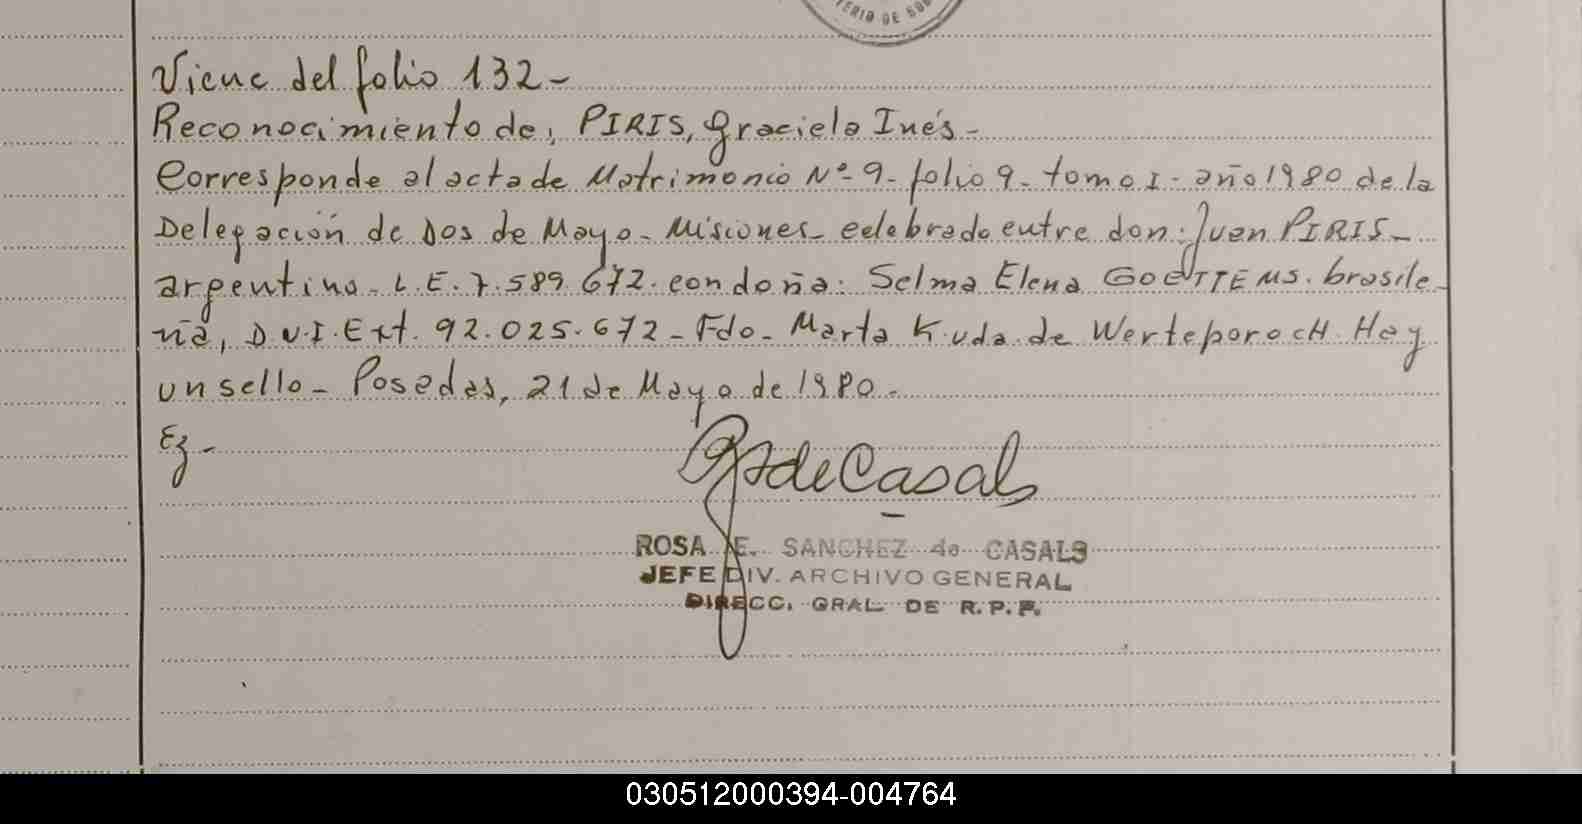 TERIO DE GOB
Viene del folio 132-
Reconocimiento de, PIRIS, Graciela Inés-
Corresponde al acta de Matrimonio Nº-9- folio 9- tomo I- año 1980 de la
Delegación de Dos de Mayo- Misiones- celebrado entre don: Juan PIRIS-
argentino- L.E. 7.589.672. con doña: Selma Elena GOETTEMS. brasile-
ña, D.N.I. Ext. 92.025.672- Fdo- Marta K. vda. de Werteporoch. Hay
un sello- Posadas, 21 de Mayo de 1980-
Ez-
de Casals
ROSA E. SANCHEZ de CASALS
JEFE DIV. ARCHIVO GENERAL
DIRECC. GRAL DE R. P. P.
030512000394-004764